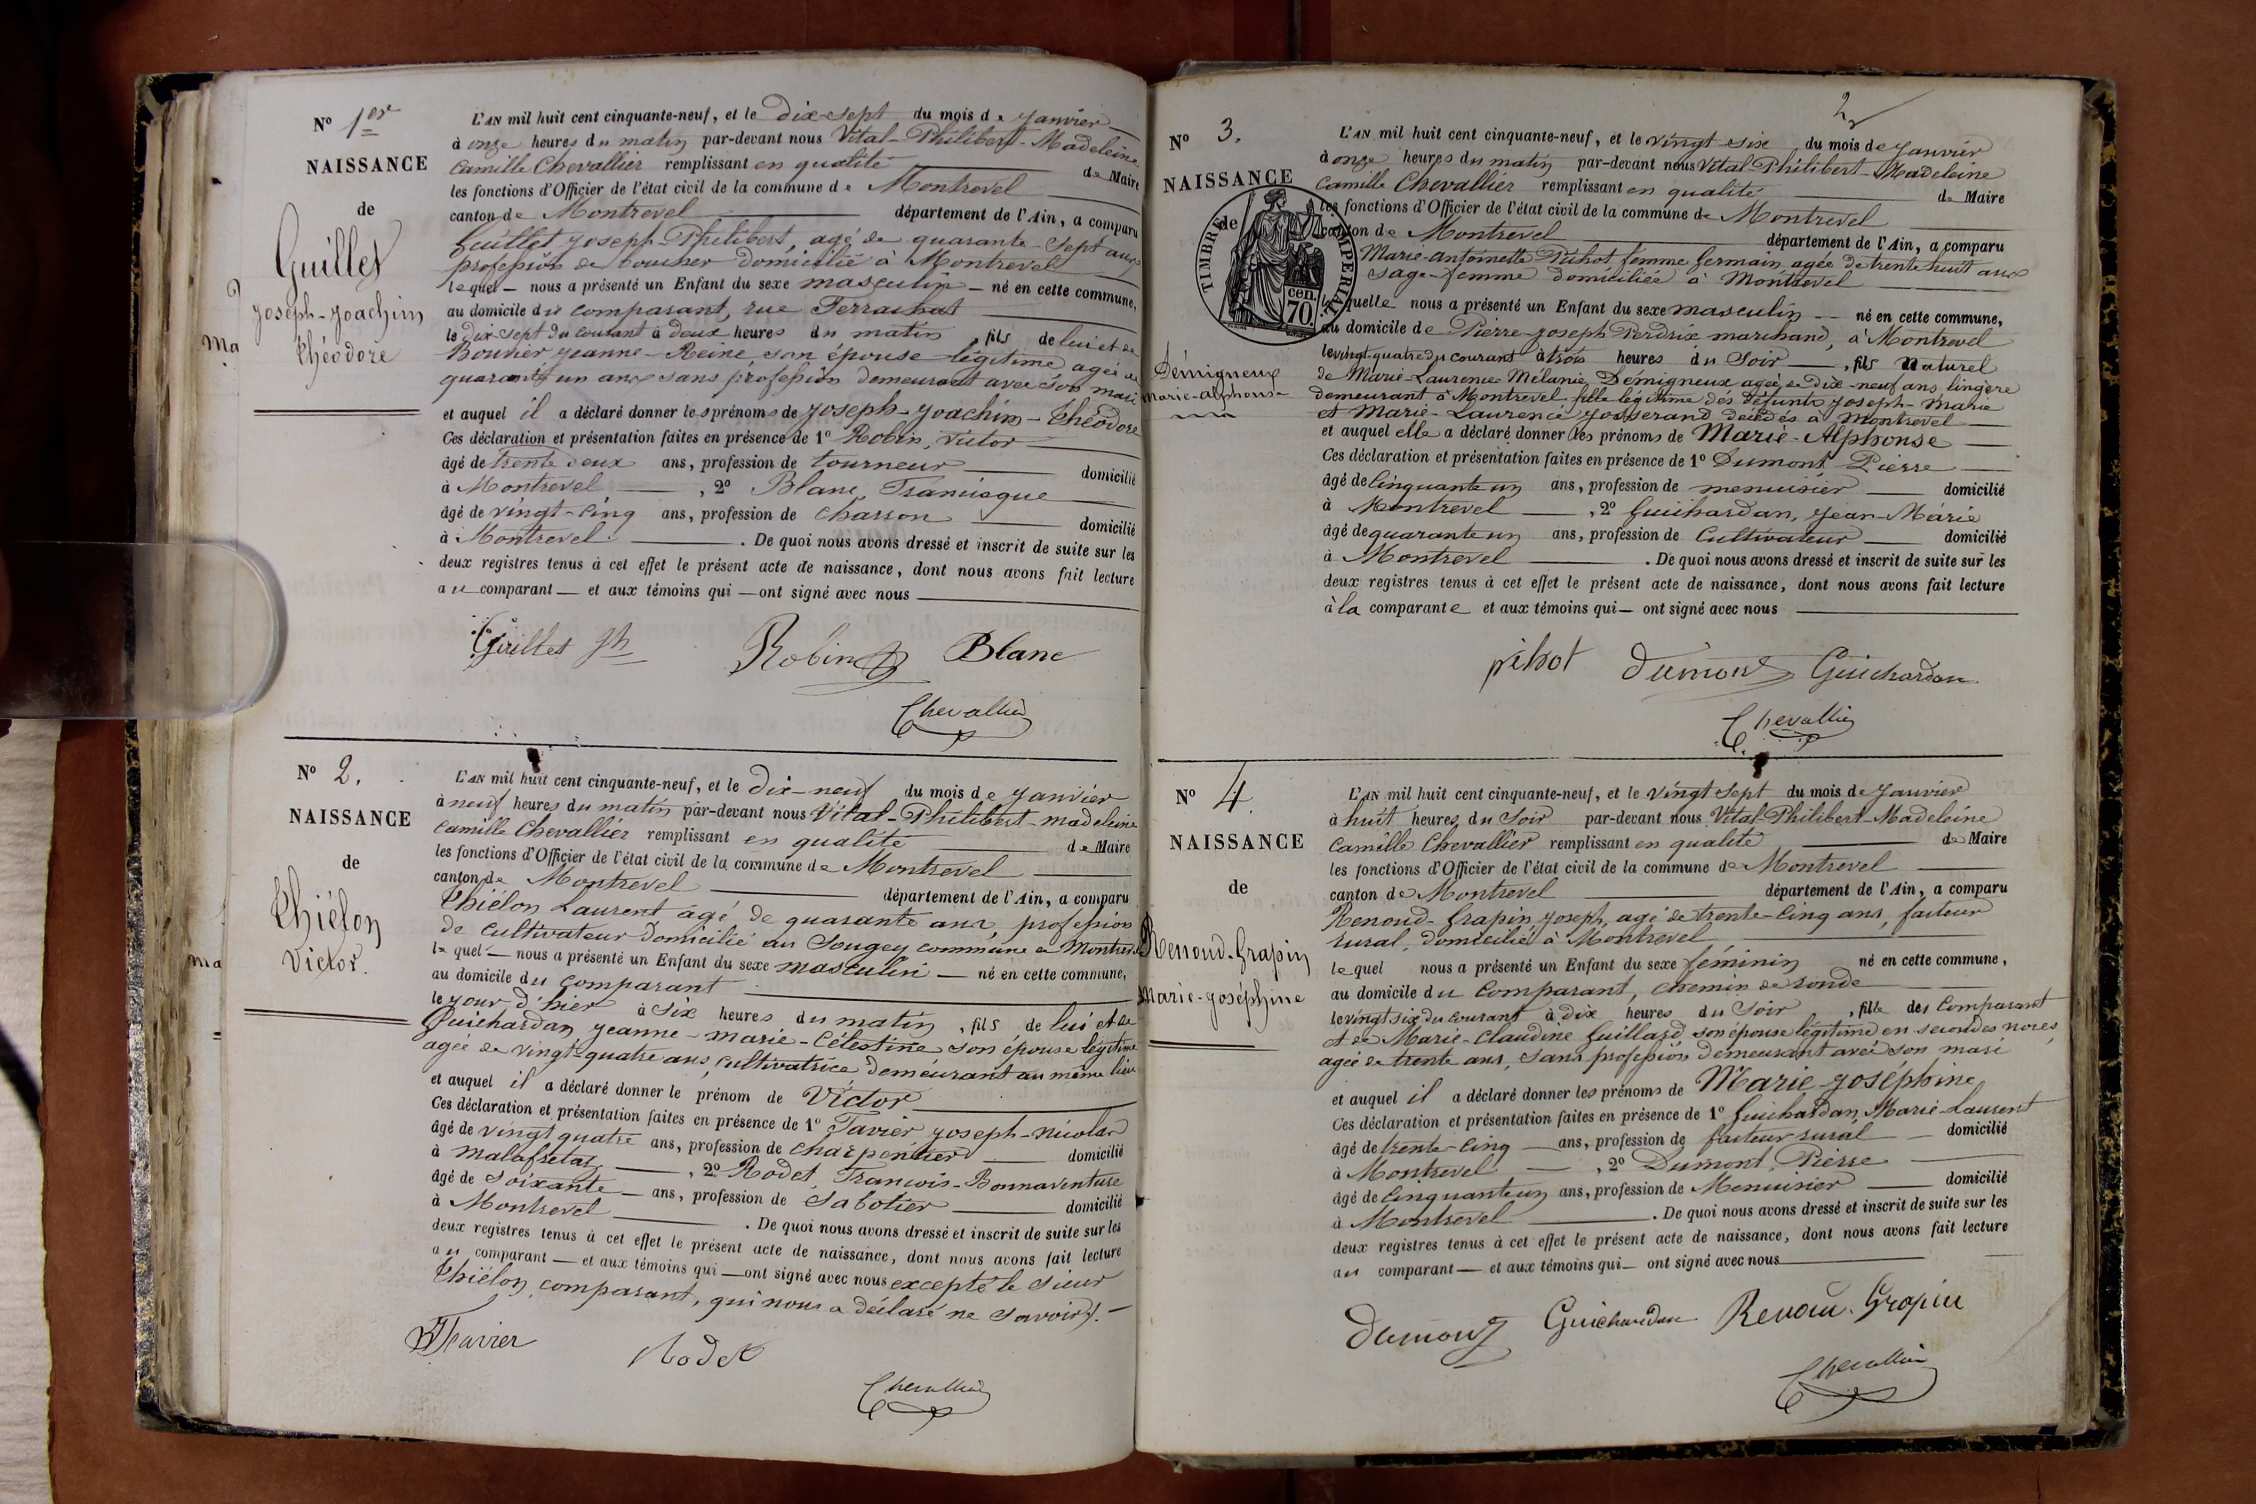 N° 1er
NAISSANCE
de
Guillet
Joseph-Joachim
Théodore
L'AN mil huit cent cinquante-neuf, et le dix-sept du mois de Janvier
à onze heures du matin par-devant nous Vital-Philibert-Madeleine
Camille Chevallier remplissant en qualité de Maire
les fonctions d'Officier de l'état civil de la commune de Montrevel
canton de Montrevel département de l'Ain, a comparu
Guillet Joseph-Philibert, agé de quarante-sept ans
profession de boucher domicilié à Montrevel
lequel nous a présenté un Enfant du sexe masculin né en cette commune,
au domicile du comparant, rue Ferrachat
le dix-sept du courant à deux heures du matin, fils de lui et de
Bouvier Jeanne-Reine, son épouse légitime agée de
quarante un ans sans profession demeurant avec son mari
et auquel il a déclaré donner les prénoms de Joseph-Joachim-Théodore
Ces déclaration et présentation faites en présence de 1° Robin, Victor
âgé de trente deux ans, profession de tourneur domicilié
à Montrevel, 2° Blanc, Francisque
âgé de vingt-cinq ans, profession de charron domicilié
à Montrevel. De quoi nous avons dressé et inscrit de suite sur les
deux registres tenus à cet effet le présent acte de naissance, dont nous avons fait lecture
au comparant et aux témoins qui ont signé avec nous
Guillet Jh Robin Blanc
Chevallier
N° 2.
NAISSANCE
de
Thiélon
Victor.
L'AN mil huit cent cinquante-neuf, et le dix-neuf du mois de Janvier
à neuf heures du matin par-devant nous Vital-Philibert-Madeleine
Camille Chevallier remplissant en qualité de Maire
les fonctions d'Officier de l'état civil de la commune de Montrevel
canton de Montrevel département de l'Ain, a comparu
Thiélon Laurent agé de quarante ans, profession
de cultivateur domicilié au Sougey commune de Montrevel
lequel nous a présenté un Enfant du sexe masculin né en cette commune,
au domicile du comparant
le jour d'hier à six heures du matin, fils de lui et de
Guichardan Jeanne-Marie-Célestine son épouse légitime
agée de vingt-quatre ans, cultivatrice demeurant au même lieu
et auquel il a déclaré donner le prénom de Victor
Ces déclaration et présentation faites en présence de 1° Favier Joseph-Nicolas
âgé de vingt quatre ans, profession de charpentier domicilié
à Malafretaz, 2° Rodet, François-Bonnaventure
âgé de soixante ans, profession de Sabotier domicilié
à Montrevel. De quoi nous avons dressé et inscrit de suite sur les
deux registres tenus à cet effet le présent acte de naissance, dont nous avons fait lecture
au comparant et aux témoins qui ont signé avec nous excepté le sieur
Thiélon comparant, qui nous a déclaré ne savoir
Favier Rodet
Chevallier
2
N° 3.
NAISSANCE
de
TIMBRE IMPERIAL
70 cen.
Démigneux
Marie-Alphonse
L'AN mil huit cent cinquante-neuf, et le vingt six du mois de Janvier
à onze heures du matin par-devant nous Vital-Philibert-Madeleine
Camille Chevallier remplissant en qualité de Maire
les fonctions d'Officier de l'état civil de la commune de Montrevel
canton de Montrevel département de l'Ain, a comparu
Marie-Antoinette Pihot femme Germain agée de trente huit ans
sage-femme domiciliée à Montrevel
laquelle nous a présenté un Enfant du sexe masculin né en cette commune,
au domicile de Pierre-Joseph Perdrix marchand, à Montrevel
le vingt-quatre du courant à trois heures du Soir, fils naturel
de Marie-Laurence Mélanie Démigneux agée de dix-neuf ans, lingère
demeurant à Montrevel fille légitime des défunts Joseph-Marie
et Marie-Laurence Josserand décédés à Montrevel
et auquel elle a déclaré donner les prénoms de Marie-Alphonse
Ces déclaration et présentation faites en présence de 1° Dumont Pierre
âgé de cinquante un ans, profession de menuisier domicilié
à Montrevel, 2° Guichardan, Jean-Marie
âgé de quarante un ans, profession de Cultivateur domicilié
à Montrevel. De quoi nous avons dressé et inscrit de suite sur les
deux registres tenus à cet effet le présent acte de naissance, dont nous avons fait lecture
à la comparante et aux témoins qui ont signé avec nous
pihot Dumont Guichardan
Chevallier
N° 4.
NAISSANCE
de
Renoud-Grapin
Marie-Joséphine
L'AN mil huit cent cinquante-neuf, et le vingt sept du mois de Janvier
à huit heures du Soir par-devant nous Vital-Philibert-Madeleine
Camille Chevallier remplissant en qualité de Maire
les fonctions d'Officier de l'état civil de la commune de Montrevel
canton de Montrevel département de l'Ain, a comparu
Renoud-Grapin, Joseph, agé de trente-cinq ans, facteur
rural, domicilié à Montrevel
lequel nous a présenté un Enfant du sexe féminin né en cette commune,
au domicile du Comparant, chemin de ronde
le vingt six du courant à dix heures du Soir, fille des Comparant
et de Marie-Claudine Guillard son épouse légitime en secondes noces,
agée de trente ans, sans profession demeurant avec son mari
et auquel il a déclaré donner les prénoms de Marie-Joséphine
Ces déclaration et présentation faites en présence de 1° Guichardan, Marie-Laurent
âgé de trente-cinq ans, profession de facteur rural domicilié
à Montrevel, 2° Dumont, Pierre
âgé de cinquante un ans, profession de Menuisier domicilié
à Montrevel. De quoi nous avons dressé et inscrit de suite sur les
deux registres tenus à cet effet le présent acte de naissance, dont nous avons fait lecture
au comparant et aux témoins qui ont signé avec nous
Dumont Guichardan Renoud-Grapin
Chevallier